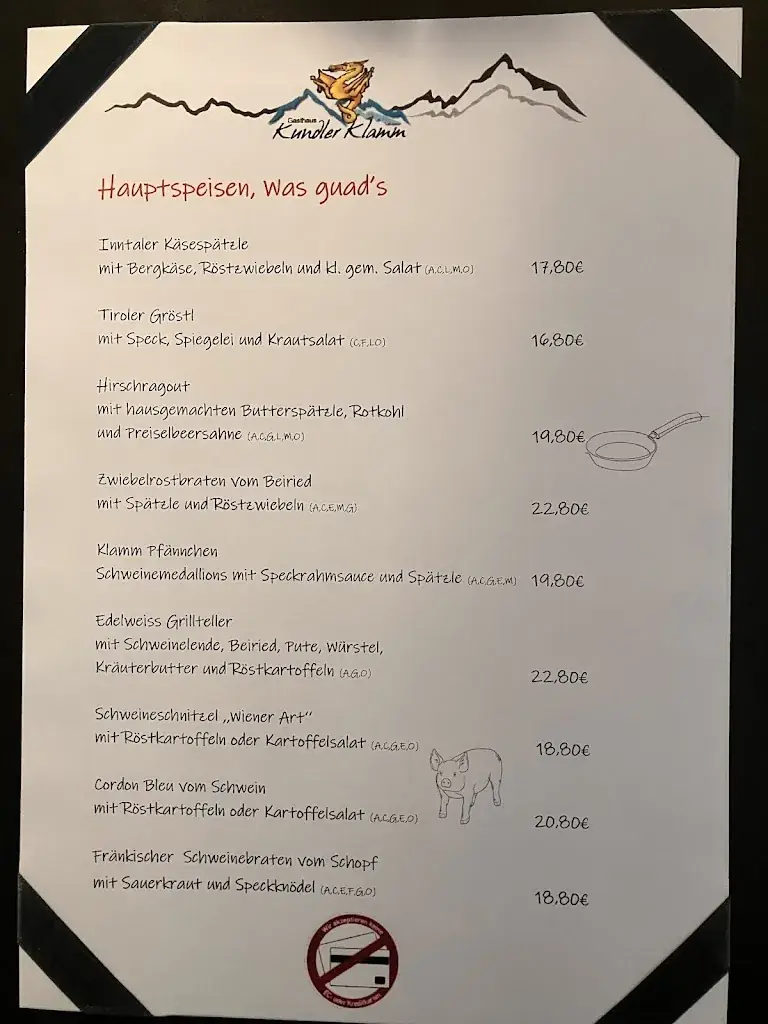 Gasthaus
Kundler Klamm
Hauptspeisen, Was guad's
Inntaler Käsespätzle
mit Bergkäse, Röstzwiebeln und kl. gem. Salat (A,C,L,M,O) 17,80€
Tiroler Gröstl
mit Speck, Spiegelei und Krautsalat (C,F,L,O) 16,80€
Hirschragout
mit hausgemachten Butterspätzle, Rotkohl
und Preiselbeersahne (A,C,G,L,M,O) 19,80€
Zwiebelrostbraten vom Beiried
mit Spätzle und Röstzwiebeln (A,C,E,M,G) 22,80€
Klamm Pfännchen
Schweinemedallions mit Speckrahmsauce und Spätzle (A,C,G,E,M) 19,80€
Edelweiss Grillteller
mit Schweinelende, Beiried, Pute, Würstel,
Kräuterbutter und Röstkartoffeln (A,G,O) 22,80€
Schweineschnitzel „Wiener Art“
mit Röstkartoffeln oder Kartoffelsalat (A,C,G,E,O) 18,80€
Cordon Bleu vom Schwein
mit Röstkartoffeln oder Kartoffelsalat (A,C,G,E,O) 20,80€
Fränkischer Schweinebraten vom Schopf
mit Sauerkraut und Speckknödel (A,C,E,F,G,O) 18,80€
Wir akzeptieren keine
EC- oder Kreditkarten